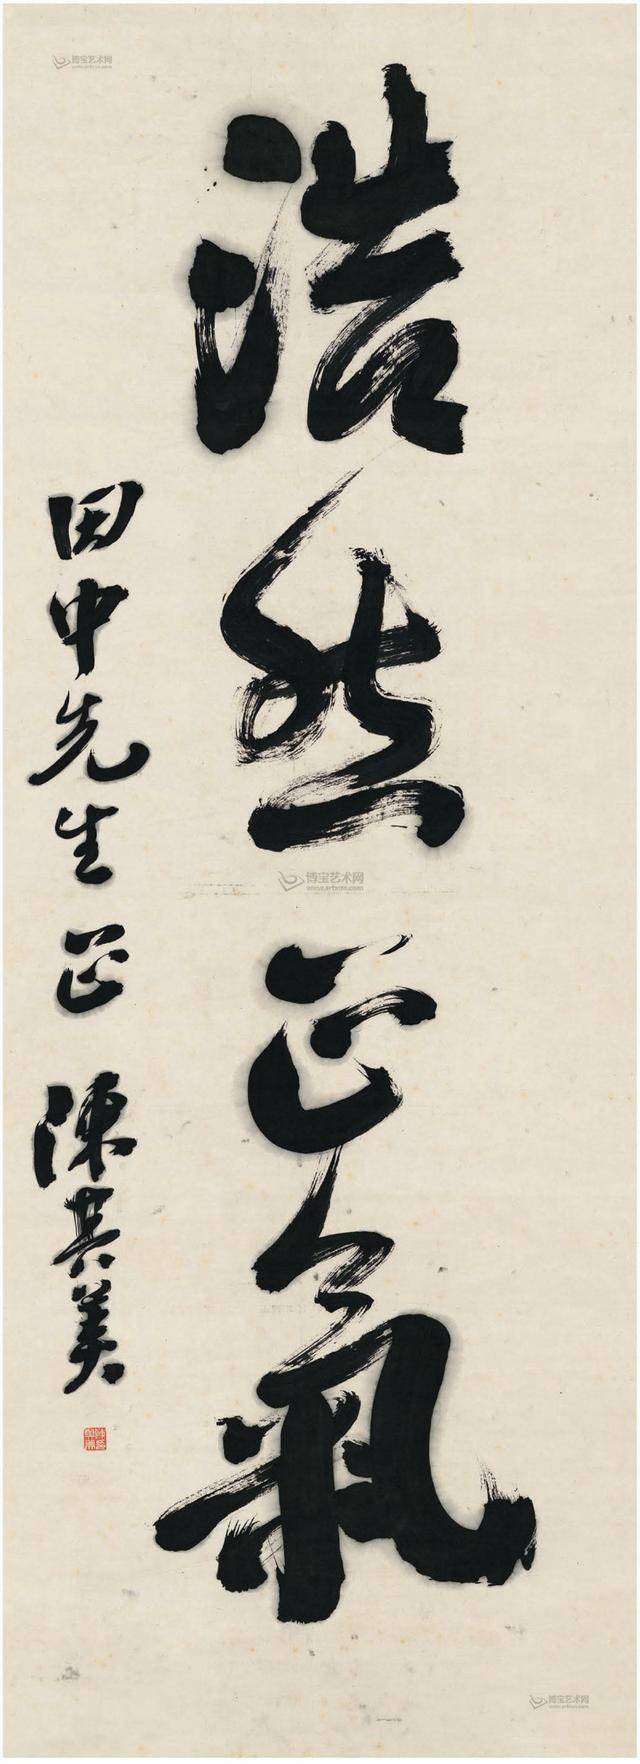 浩然正氣
田中先生 正 陳其美
博宝艺术网
www.artxun.com
博宝艺术网
www.artxun.com
博宝艺术网
www.artxun.com